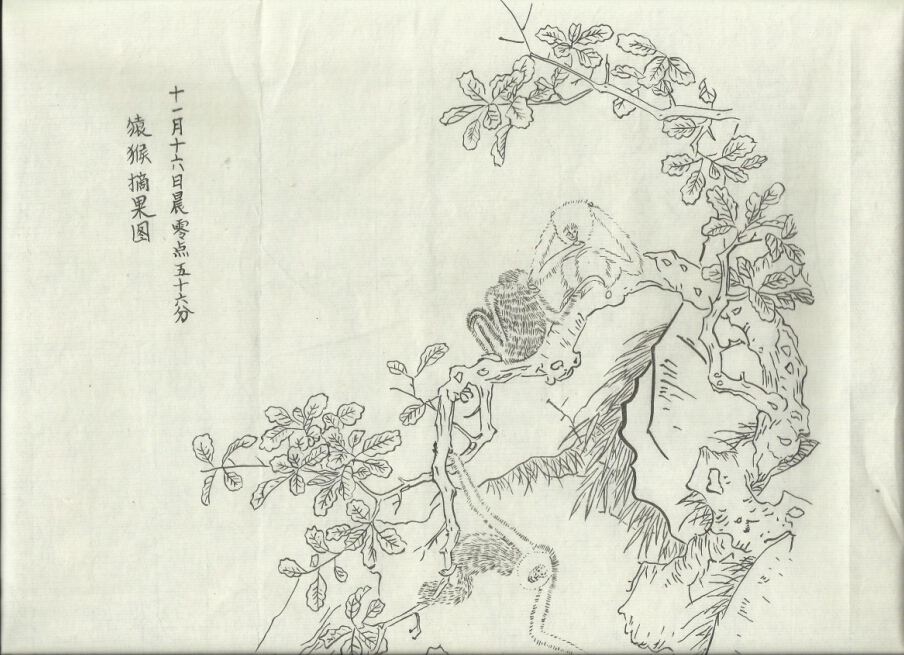 十一月十六日晨零点五十六分
猿猴摘果图